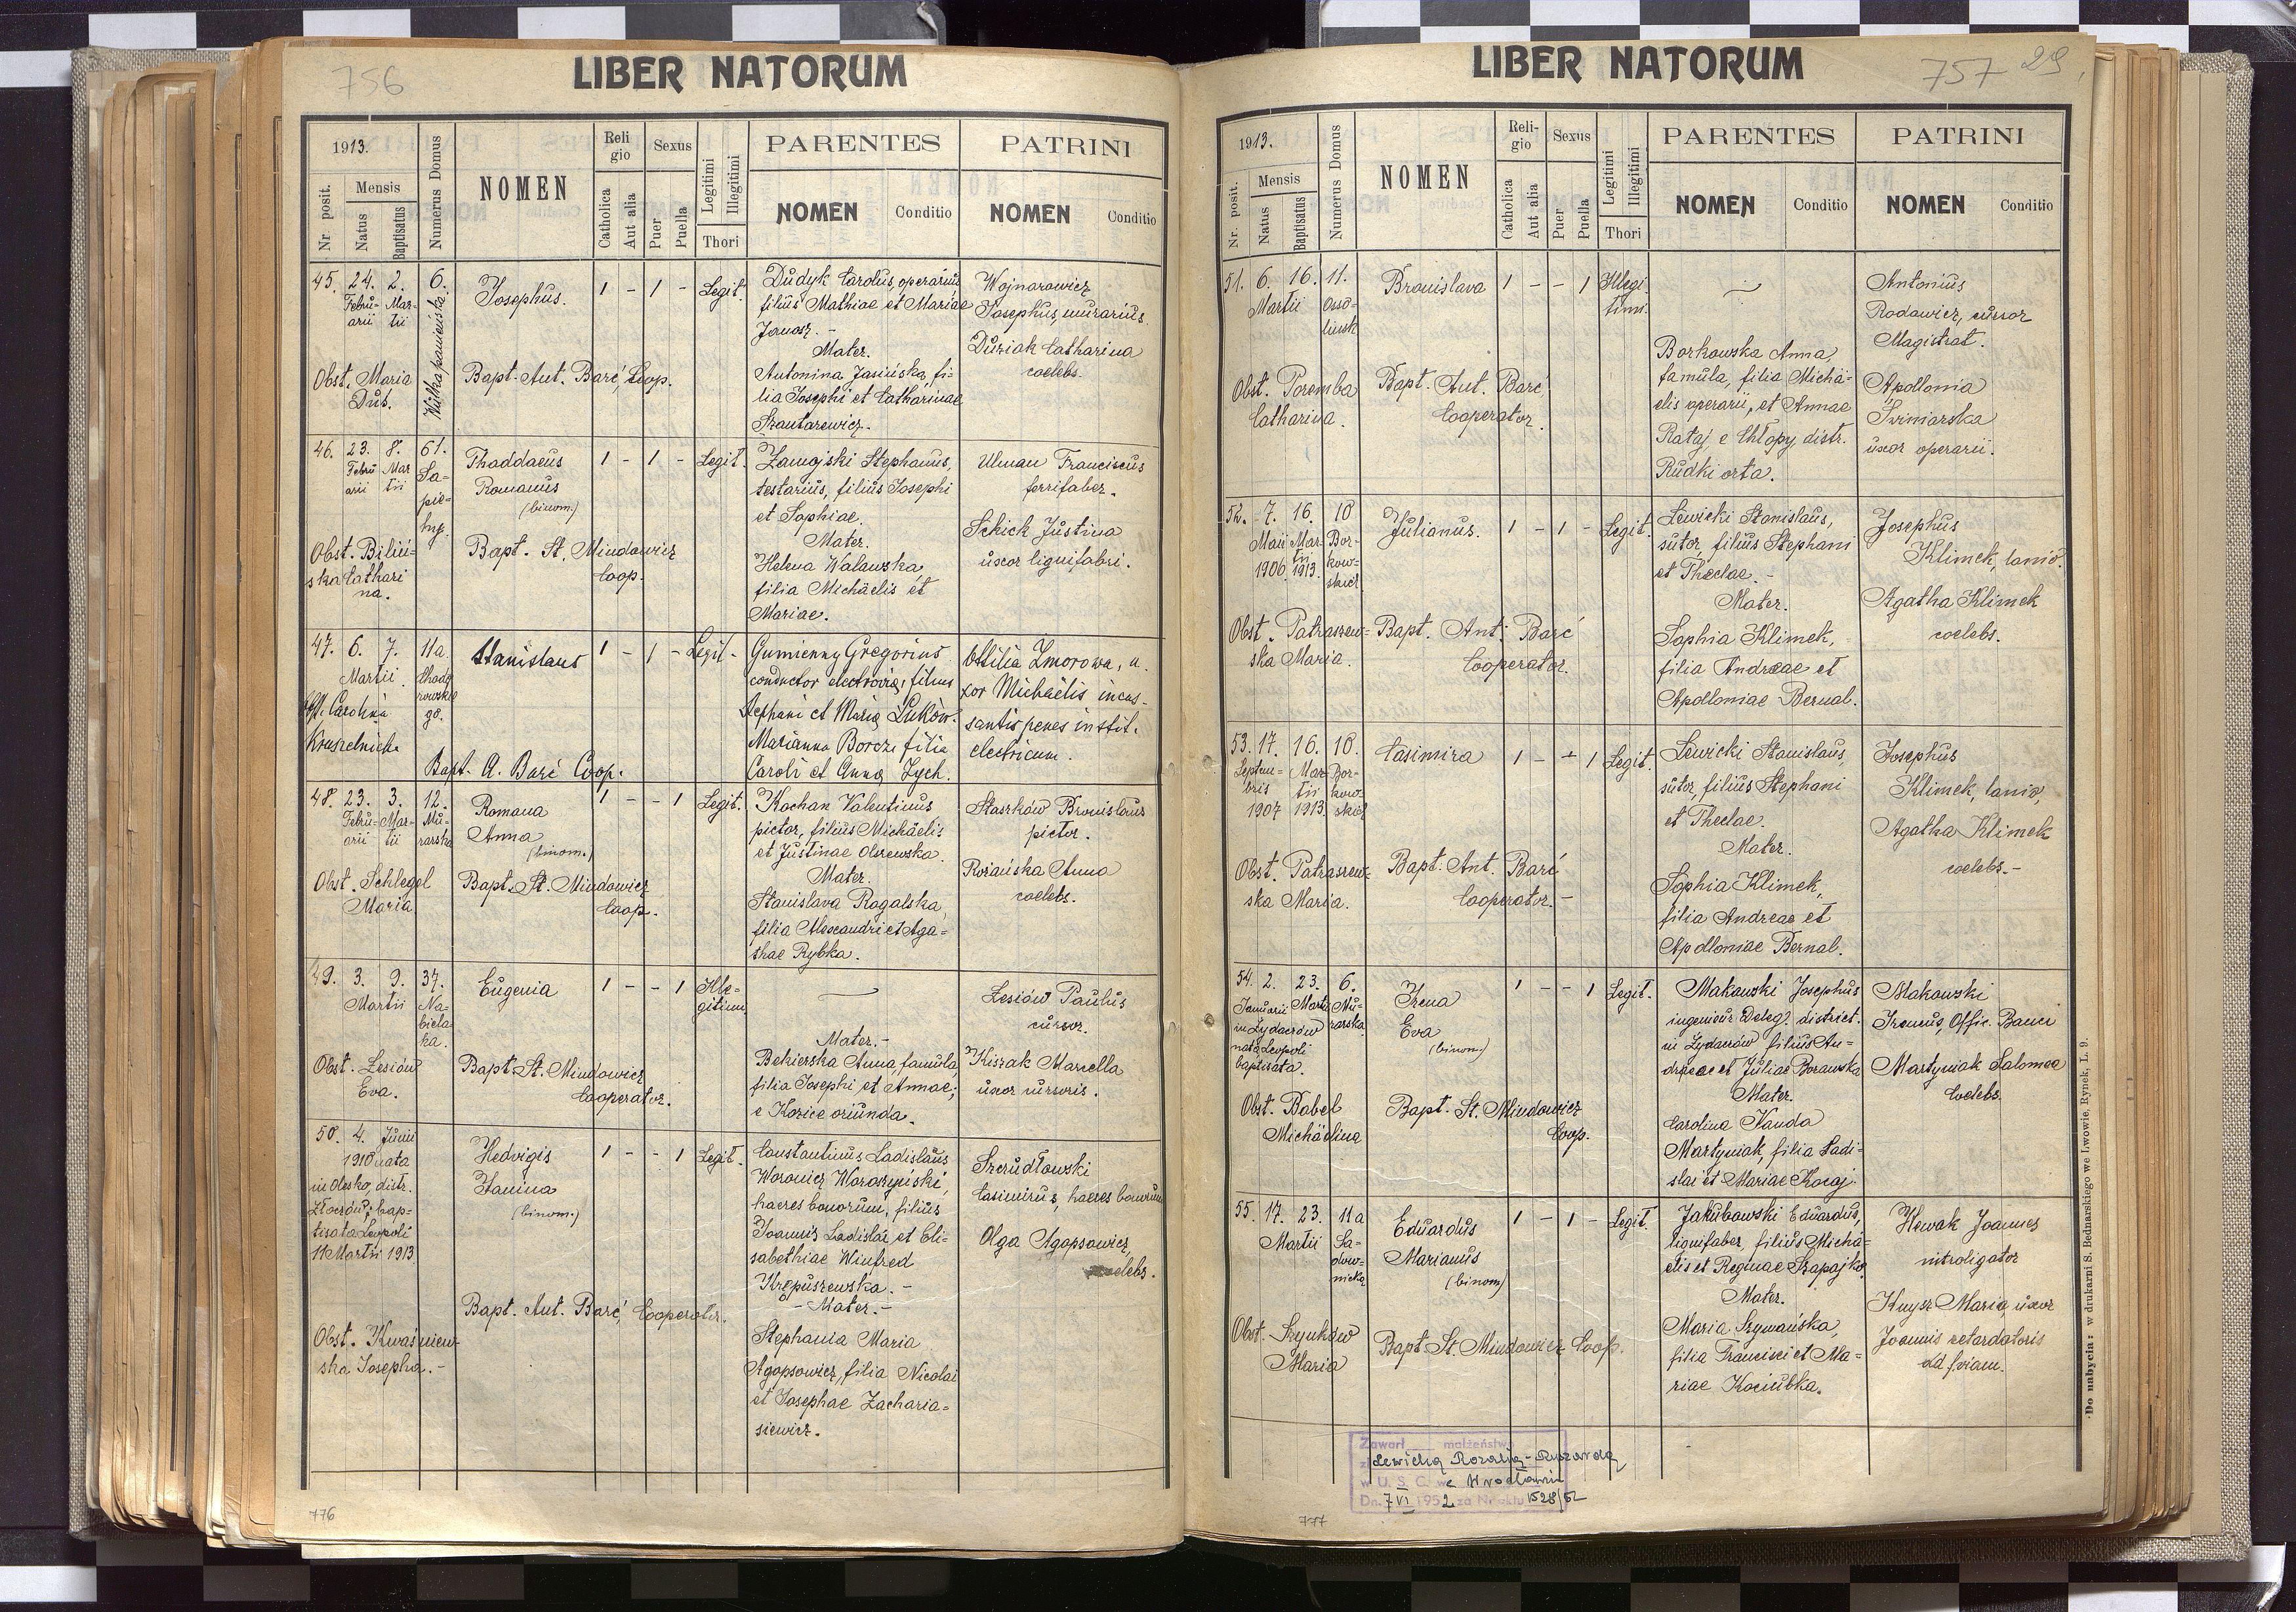 756
LIBER NATORUM
1913.
Nr. posit.
Mensis
Natus
Baptisatus
Numerus Domus
NOMEN
Religio
Catholica
Aut alia
Sexus
Puer
Puella
Legitimi
Illegitimi
Thori
PARENTES
NOMEN
Conditio
PATRINI
NOMEN
Conditio
45. 24. 2. 6.
Febru- Mar-
arii tii
Josephus. 1 - 1 - Legit.
Obst. Maria
Dub.
Bapt. Ant. Barć, Coop.
Dudyk Carolus, operarius
filius Mathiae et Mariae
Janosz. -
Mater.
Antonina Jasińska, fi-
lia Josephi et Catharinae
Szantarewicz.
Wojnarowicz
Josephus, murarius.
Duziak Catharina
coelebs.
46. 23. 8. 61.
Febru Mar
arii tii
Sa-
pie-
hy.
Thaddaeus
Romanus
(binom.)
1 - 1 - Legit.
Obst. Biliń-
ska Cathari
na.
Bapt. St. Mindowicz
Coop.
Zamojski Stephanus,
testarius, filius Josephi
et Sophiae.
Mater.
Helena Walawska
filia Michäelis et
Mariae.
Ulman Franciscus
ferrifaber.
Schick Justina
uxor lignifabri.
47. 6. 7. 11a
Martii.
Stanislaus 1 - 1 - Legit-
Obst. Carolina
Bapt. A. Barć Coop.
Gumienny Gregorius
conductor electrovia, filius
Stephani et Maria Luków.
Marianna Borcz, filia
Caroli et Anna Zych.
Ottilia Zmorowa, u-
xor Michaëlis incas-
santis penes instit.
electricum.
48. 23. 3. 12.
Febru- Mar-
arii tii
Mu-
rarska
Romana
Anna
(binom.)
1 - - 1 Legit.
Obst. Schlegel
Maria
Bapt. St. Mindowicz
Coop.
Kochan Valentinus
pictor, filius Michäelis
et Justinae Olszewska.
Mater.
Stanislava Rogalska,
filia Alexandri et Aga-
thae Rybka.
Staszków Bronislaus
pictor.
Rożańska Anna
coelebs.
49. 3. 9. 37.
Martii
Na-
biela-
ka.
Eugenia 1 - - 1 Ille-
gitimi
Obst. Lesiów
Eva.
Bapt. St. Mindowicz
Cooperator.
Mater.-
Bekierska Anna, famula,
filia Josephi et Annae,
e Kozice oriunda.
Lesiów Paulus
cursor.
Kiszak Marcella
uxor cursoris.
50. 4. Junii
1910 nata
in Olesko, distr.
Złoczów; bap-
tisata Leopoli
11 Martii 1913
Hedvigis
Janina
(binom.)
1 - - 1 Legit.
Bapt. Ant. Barć, Cooperator.
Obst. Kwaśniew-
ska Josepha.-
Constantinus Ladislaus
Woronicz Woroszyński,
haeres bonorum, filius
Joannis Ladislai et Eli-
sabethiae Winfred
Krzpuszewska.-
- Mater.-
Stephania Maria
Agopsowicz, filia Nicolai
et Josephae Zacharia-
siewicz.
Szczudłowski
Casimirus, haeres bonorum
Olga Agopsowicz,
coelebs.
776
LIBER NATORUM
757 29
1913.
Nr. posit.
Mensis
Natus
Baptisatus
Numerus Domus
NOMEN
Religio
Catholica
Aut alia
Sexus
Puer
Puella
Legitimi
Illegitimi
Thori
PARENTES
NOMEN
Conditio
PATRINI
NOMEN
Conditio
51. 6. 16. 11.
Martii
Osso-
linsk
Bronislava 1 - - 1 Illegi-
timi.
Obst. Poremba
Catharina.
Bapt. Ant. Barć
Cooperator.
Borkowska Anna,
famula, filia Michä-
elis operarii, et Annae
Rataj, e Chłopy, distr.
Rudki orta.
Antonius
Rodawicz, cursor
Magistrat.
Apollonia
Świniarska
uxor operarii.
52. 7. 16. 10
Maii Mar-
tii
1906. 1913.
Bor-
kow-
skich
Julianus. 1 - 1 - Legit.
Obst. Patraszew-
ska Maria.
Bapt. Ant. Barć
Cooperator.
Lewicki Stanislaus,
sutor, filius Stephani
et Theclae.-
Mater.
Sophia Klimek,
filia Andreae et
Apolloniae Bernal.
Josephus
Klimek, lanio.
Agatha Klimek
coelebs.
53. 17. 16. 10.
Septem- Mar-
bris tii
1907 1913.
Bor-
kow-
skich
Casimira 1 - - 1 Legit.
Obst. Patraszew-
ska Maria.
Bapt. Ant. Barć
Cooperator.-
Lewicki Stanislaus,
sutor, filius Stephani
et Theclae.
Mater.
Sophia Klimek,
filia Andreae et
Apolloniae Bernal.
Josephus
Klimek, lanio,
Agatha Klimek
coelebs.-
54. 2. 23. 6.
Januarii Martii
Mu-
rarska
in Żydaczów
nata, Leopoli
baptisata.
Irena
Eva
(binom)
1 - - 1 Legit.
Obst. Babel
Michäelina
Bapt. St. Mindowicz
Coop.
Makowski Josephus
ingenieur Deleg. district.
in Żydaczów filius An-
dreae et Juliae Borawska
Mater.
Carolina Wanda
Martyniak, filia Ladi-
slai et Mariae Kocaj.
Makowski
Ireneus, Offic. Banci
Martyniak Salomea
Coelebs.
55. 17. 23. 11a
Martii
Sa-
dow-
nicka
Eduardus
Marianus
(binom)
1 - 1 - Legit.
Obst. Szynków
Maria
Bapt. St. Mindowicz Coop.
Jakubowski Eduardus,
lignifaber, filius Michä-
elis et Reginae Szapajko.
Mater.
Maria Szymańska,
filia Francisci et Ma-
riae Kociubka.
Hewak Joannes
introligator
Knysz Maria, uxor
Joannis retardatoris
ad f. viam.
Zawarł małżeństwo
z Lewicką Rozalią-Ryszardą
w U. S. C. we Wrocławiu
Dn. 7 VI 1952 za Nr aktu 1528/52
777
Do nabycia: w drukarni S. Bednarskiego we Lwowie, Rynek, L. 9.